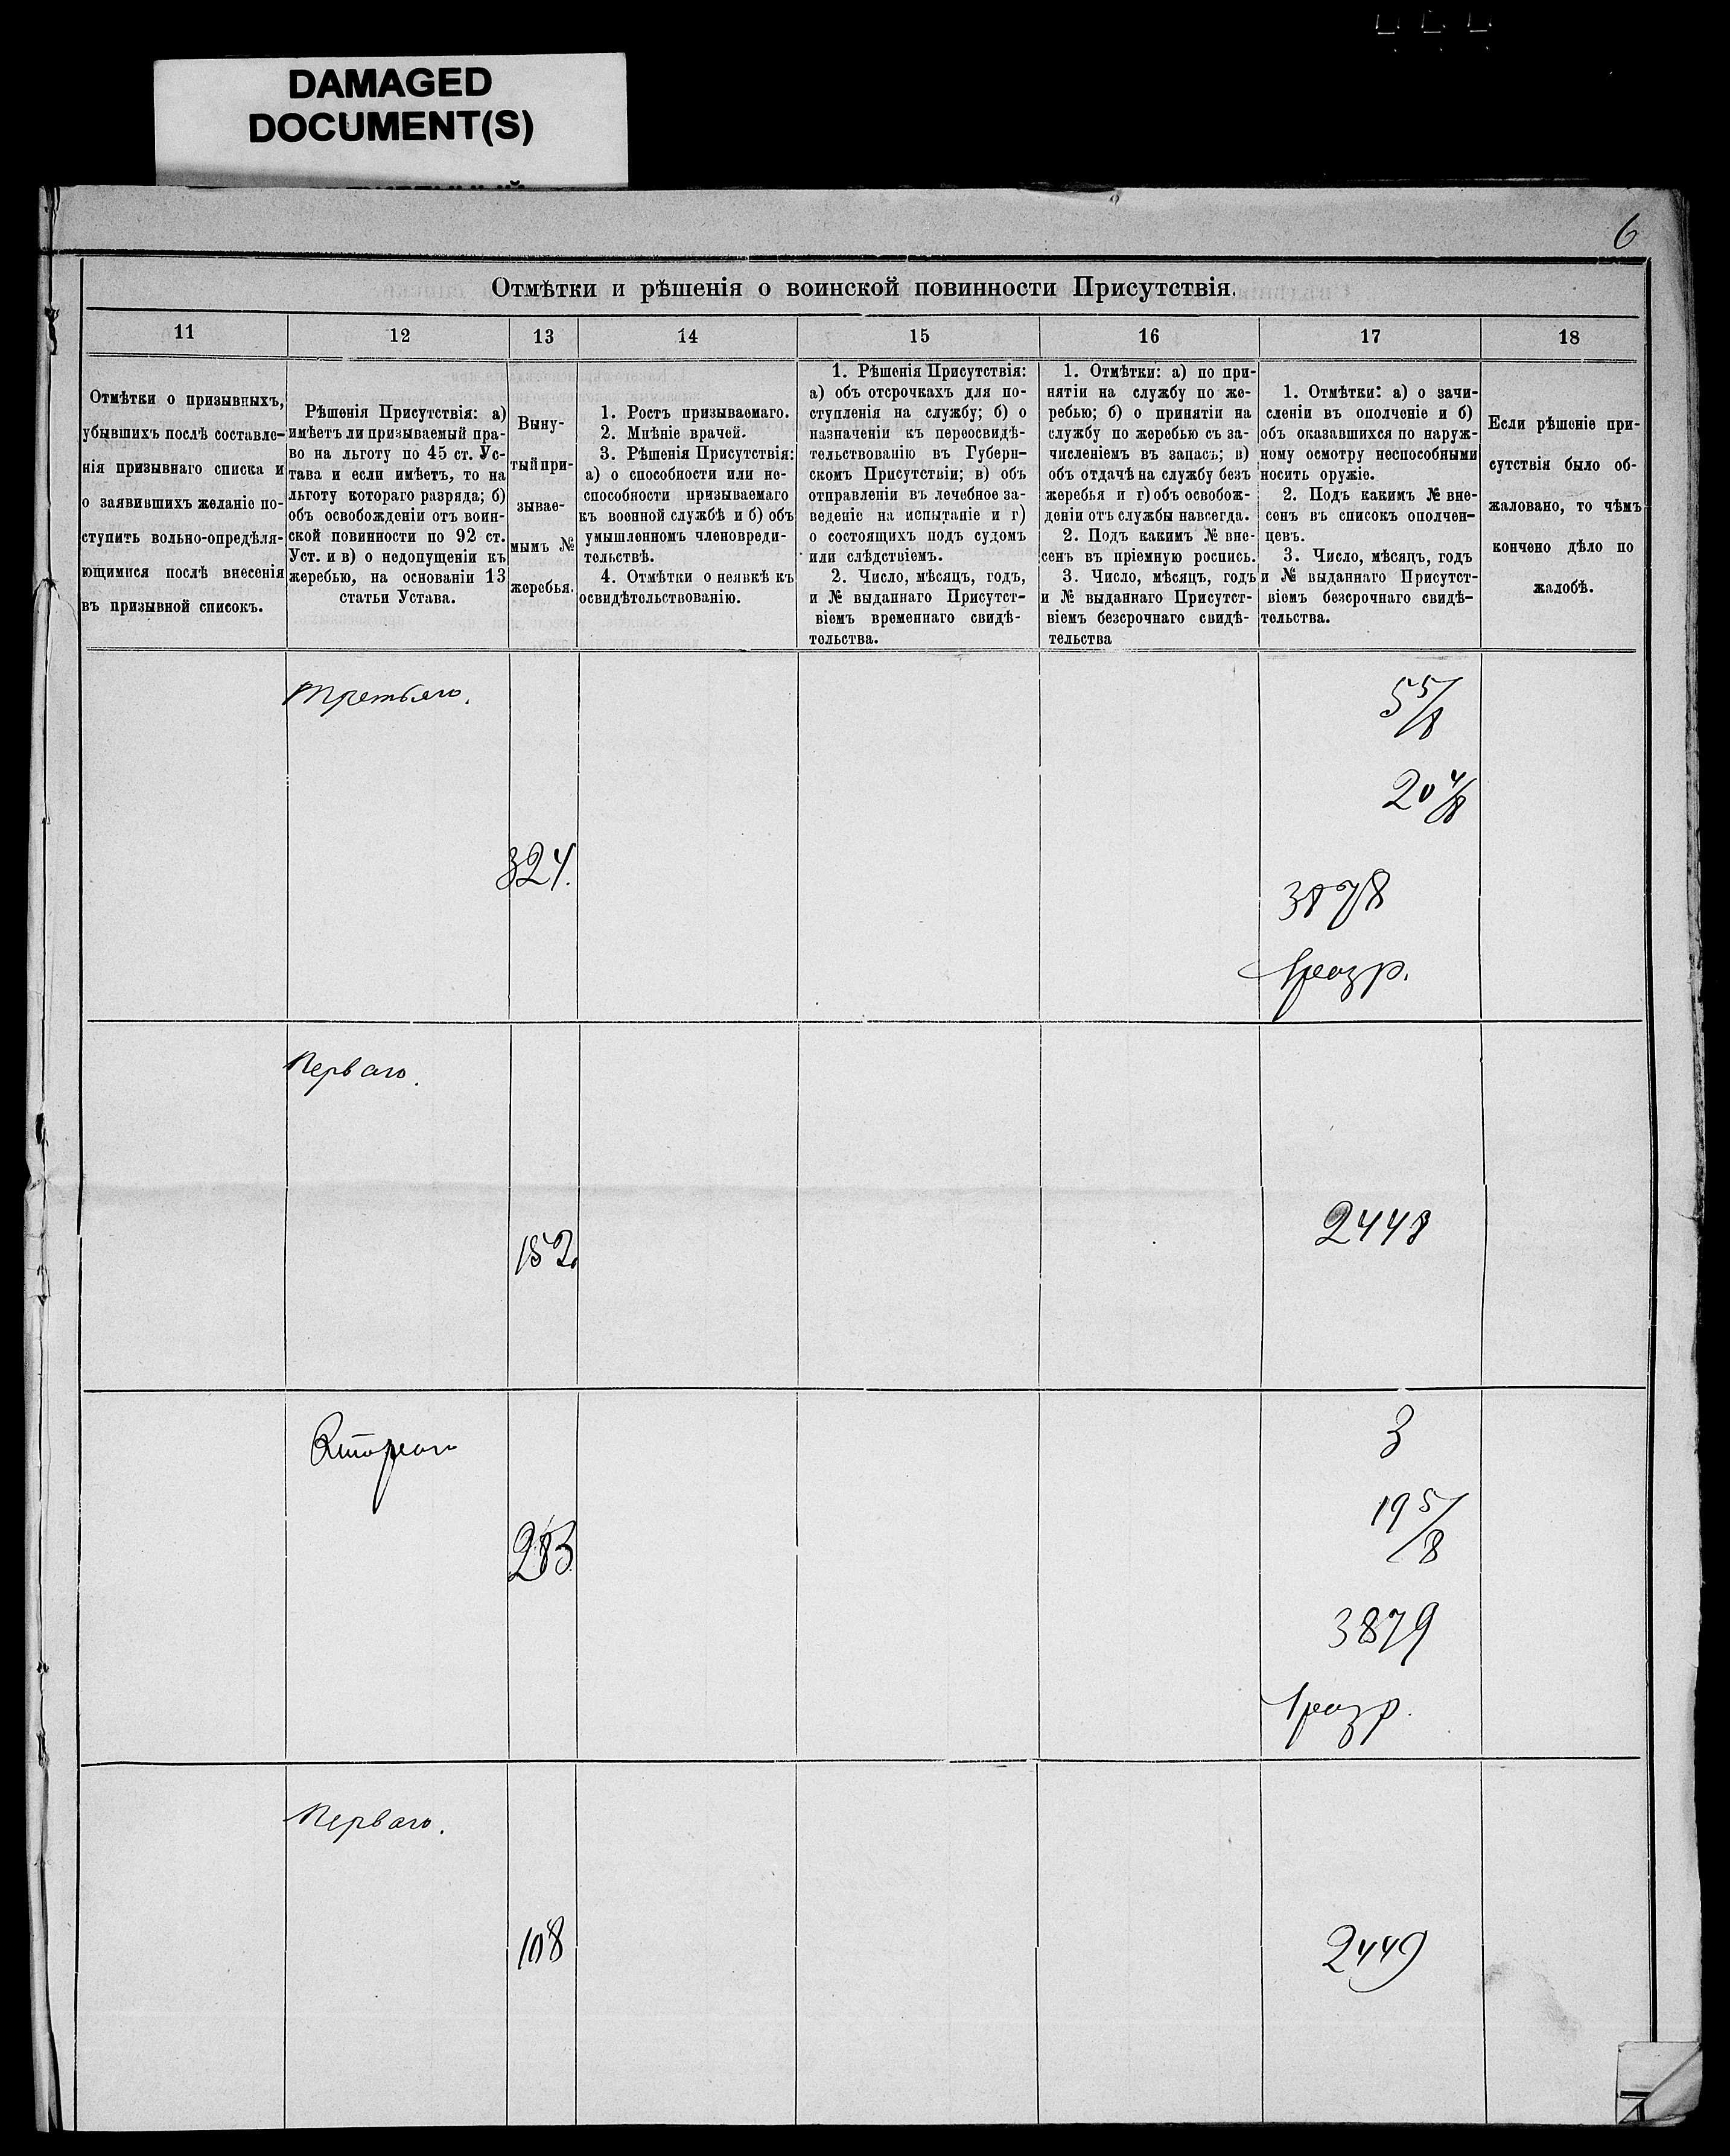 DAMAGED
DOCUMENT(S)
6
Отмѣтки и рѣшенія о воинской повинности Присутствія.
11
12
13
14
15
16
17
18
Отмѣтки о призывныхъ,
убывшихъ послѣ составле-
нія призывнаго списка и
о заявившихъ желаніе по-
ступить вольно-опредѣля-
ющимися послѣ внесенія
въ призывной списокъ.
Рѣшенія Присутствія: а)
имѣетъ ли призываемый пра-
во на льготу по 45 ст. Ус-
тава и если имѣетъ, то на
льготу котораго разряда; б)
объ освобожденіи отъ воин-
ской повинности по 92 ст.
Уст. и в) о недопущеніи къ
жеребью, на основаніи 13
статьи Устава.
Выну-
тый при-
зывае-
мымъ №
жеребья.
1. Ростъ призываемаго.
2. Мнѣніе врачей.
3. Рѣшенія Присутствія:
а) о способности или не-
способности призываемаго
къ военной службѣ и б) объ
умышленномъ членовреди-
тельствѣ.
4. Отмѣтки о неявкѣ къ
освидѣтельствованію.
1. Рѣшенія Присутствія:
а) объ отсрочкахъ для по-
ступленія на службу; б) о
назначеніи къ переосвидѣ-
тельствованію въ Губерн-
скомъ Присутствіи; в) объ
отправленіи въ лечебное за-
веденіе на испытаніе и г)
о состоящихъ подъ судомъ
или слѣдствіемъ.
2. Число, мѣсяцъ, годъ,
и № выданнаго Присутст-
віемъ временнаго свидѣ-
тельства.
1. Отмѣтки: а) по при-
нятіи на службу по же-
ребью; б) о принятіи на
службу по жеребью съ за-
численіемъ въ запасъ; в)
объ отдачѣ на службу безъ
жеребья и г) объ освобож-
деніи отъ службы навсегда.
2. Подъ какимъ № вне-
сенъ въ пріемную роспись.
3. Число, мѣсяцъ, годъ
и № выданнаго Присутст-
віемъ безсрочнаго свидѣ-
тельства
1. Отмѣтки: а) о зачи-
сленіи въ ополченіе и б)
объ оказавшихся по наруж-
ному осмотру неспособными
носить оружіе.
2. Подъ какимъ № вне-
сенъ въ списокъ ополчен-
цевъ.
3. Число, мѣсяцъ, годъ
и № выданнаго Присутст-
віемъ безсрочнаго свидѣ-
тельства.
Если рѣшеніе при-
сутствія было об-
жаловано, то чѣмъ
кончено дѣло по
жалобѣ.
Третьяго.
324.
5 5/8
20 4/8
3878
1 разр.
Перваго.
152.
2448
Втораго
3
19 5/8
3879
1 разр.
Перваго.
108
2449